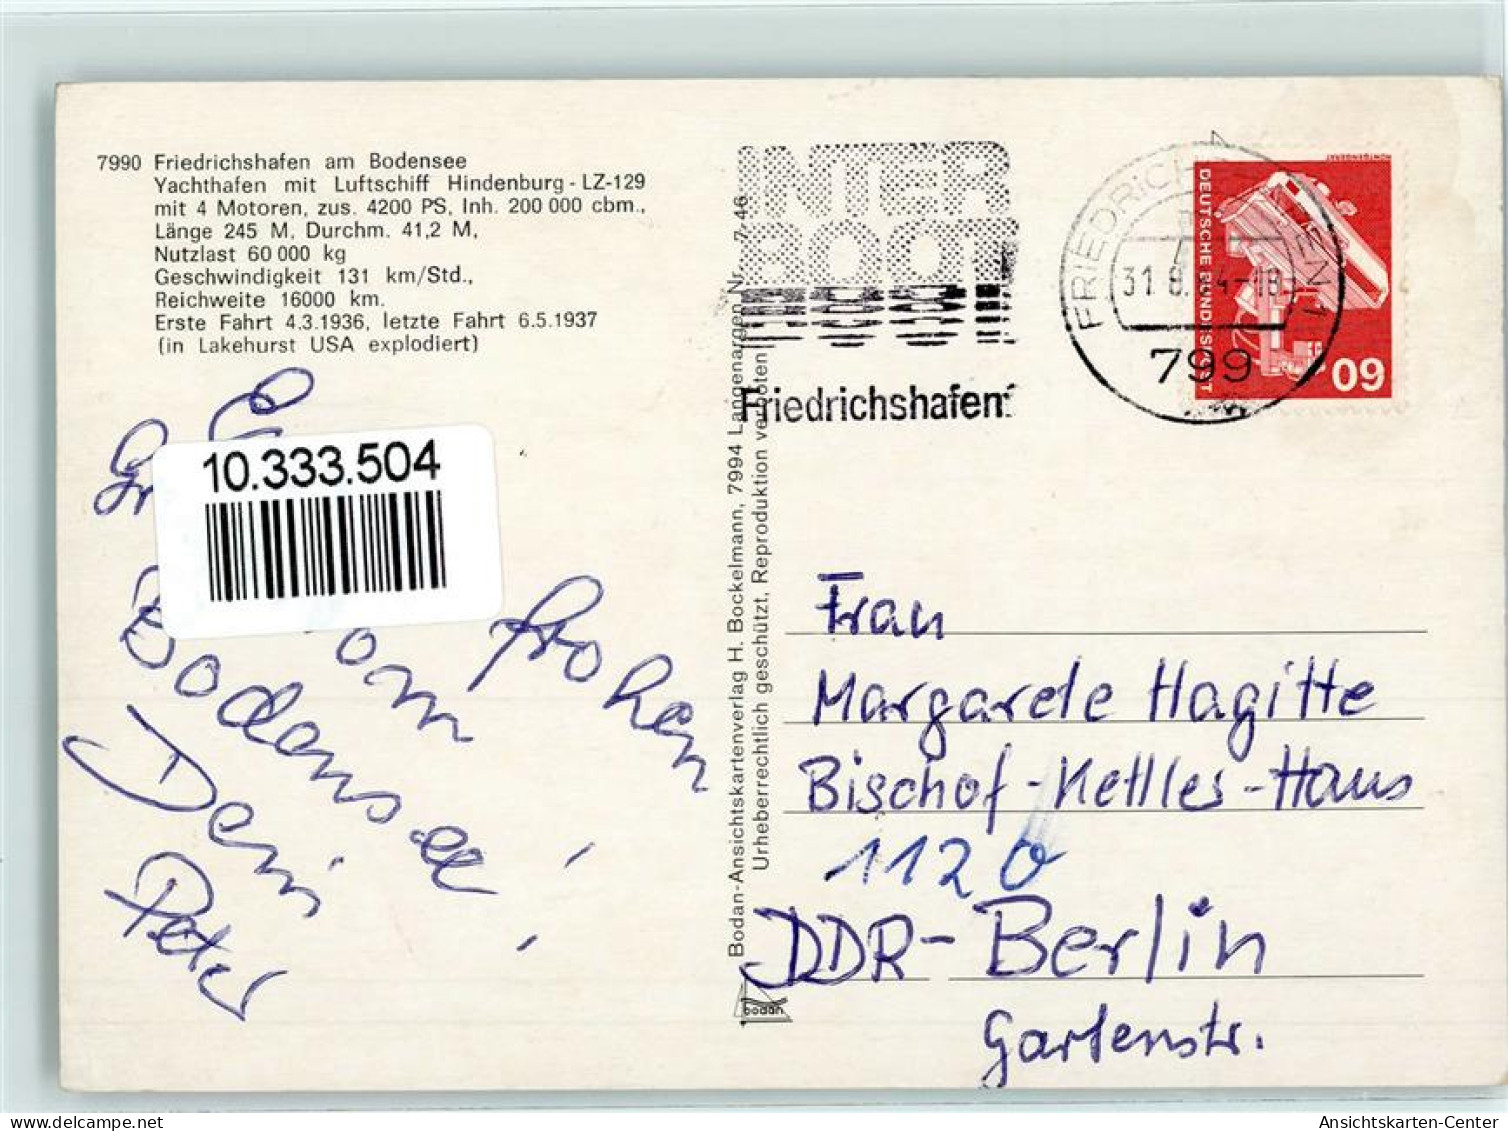 7990 Friedrichshafen am Bodensee
Yachthafen mit Luftschiff Hindenburg - LZ-129
mit 4 Motoren, zus. 4200 PS, Inh. 200 000 cbm.,
Länge 245 M, Durchm. 41,2 M,
Nutzlast 60 000 kg
Geschwindigkeit 131 km/Std.,
Reichweite 16000 km.
Erste Fahrt 4.3.1936, letzte Fahrt 6.5.1937
(in Lakehurst USA explodiert)
10.333.504
frohen
om
Bodensee!
Dein
Peter
Bodan-Ansichtskartenverlag H. Bockelmann, 7994 Langenargen, Nr. 7-46
Urheberrechtlich geschützt, Reproduktion verboten
bodan
INTER
BOOT
Friedrichshafen
799
DEUTSCHE BUNDESPOST
60
RÖNTGENGERÄT
Frau
Margarete Hagitte
Bischof-Kettler-Haus
1120
DDR-Berlin
Gartenstr.
delcampe.net
Ansichtskarten-Center